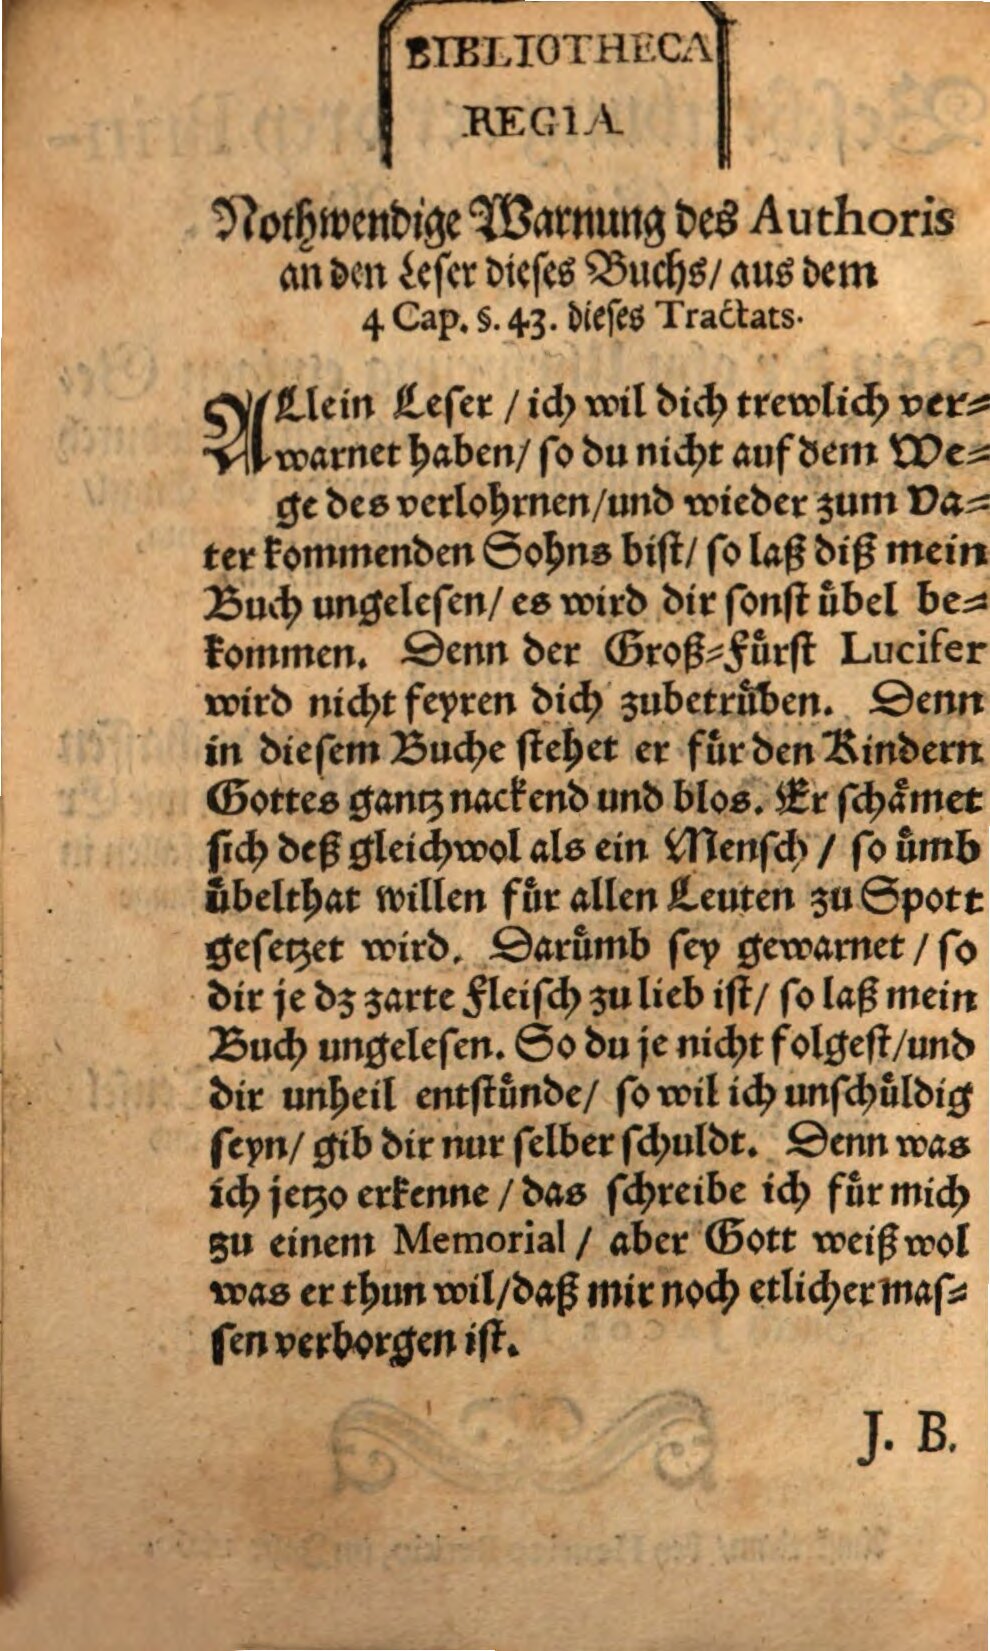 BIBLIOTHECA
REGIA
Nothwendige Warnung des Authoris
an den Leser dieses Buchs/ aus dem
4 Cap. §. 43. dieses Tractats.
ALlein Leser / ich wil dich trewlich ver=
warnet haben/ so du nicht auf dem We=
ge des verlohrnen/und wieder zum Va=
ter kommenden Sohns bist/ so laß diß mein
Buch ungelesen/ es wird dir sonst uͤbel be=
kommen. Denn der Groß=Fuͤrst Lucifer
wird nicht feyren dich zubetruͤben. Denn
in diesem Buche stehet er fuͤr den Kindern
Gottes gantz nackend und blos. Er schaͤmet
sich deß gleichwol als ein Mensch / so uͤmb
uͤbelthat willen fuͤr allen Leuten zu Spott
gesetzet wird. Daruͤmb sey gewarnet / so
dir je dz zarte Fleisch zu lieb ist/ so laß mein
Buch ungelesen. So du je nicht folgest/und
dir unheil entstuͤnde/ so wil ich unschuͤldig
seyn/ gib dir nur selber schuldt. Denn was
ich jetzo erkenne / das schreibe ich fuͤr mich
zu einem Memorial / aber Gott weiß wol
was er thun wil/daß mir noch etlicher mas=
sen verborgen ist.
J. B.